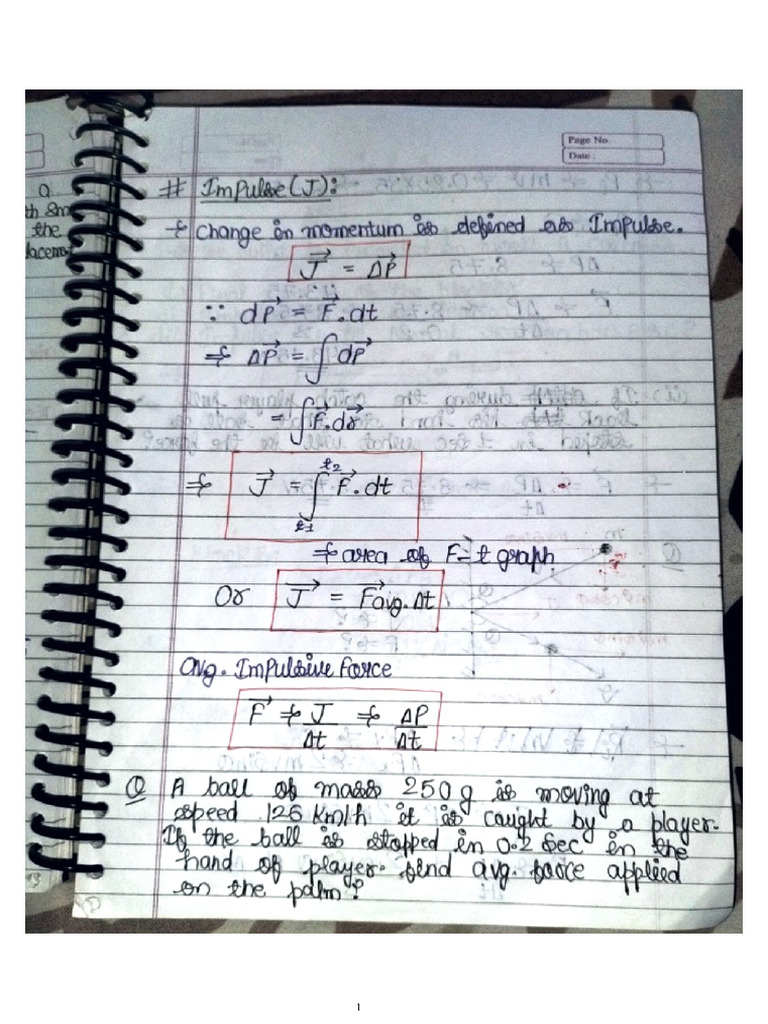 Page No.
Date :
Q
the
# Impulse (J):
→ Change in momentum is defined as Impulse.
J⃗ = ΔP⃗
∵ dP⃗ = F⃗.dt
⇒ ΔP⃗ = ∫dP⃗
= ∫F⃗.dr⃗
⇒ J⃗ = ∫t1^t2 F⃗.dt
→ area of F-t graph
Or J⃗ = F⃗avg.Δt
Avg. Impulsive Force
F⃗ → J/Δt → ΔP/Δt
Q A ball of mass 250g is moving at
speed 126 km/h it is caught by a player.
If the ball is stopped in 0.2 sec in the
hand of player. find avg. force applied
on the palm?
1